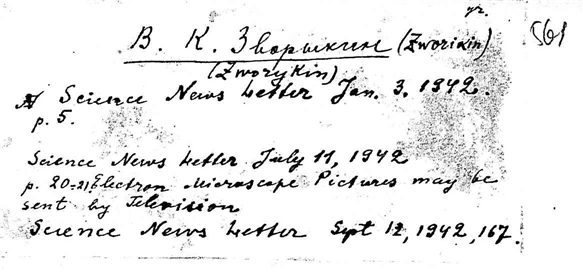 yr.
В. К. Зворыкин (Zworikin) 561
(Zworykin)
Science News Letter Jan. 3, 1942.
p. 5.
Science News Letter July 11, 1942
p. 20-21, Electron Microscope Pictures may be
sent by Television
Science News Letter Sept 12, 1942, 167.